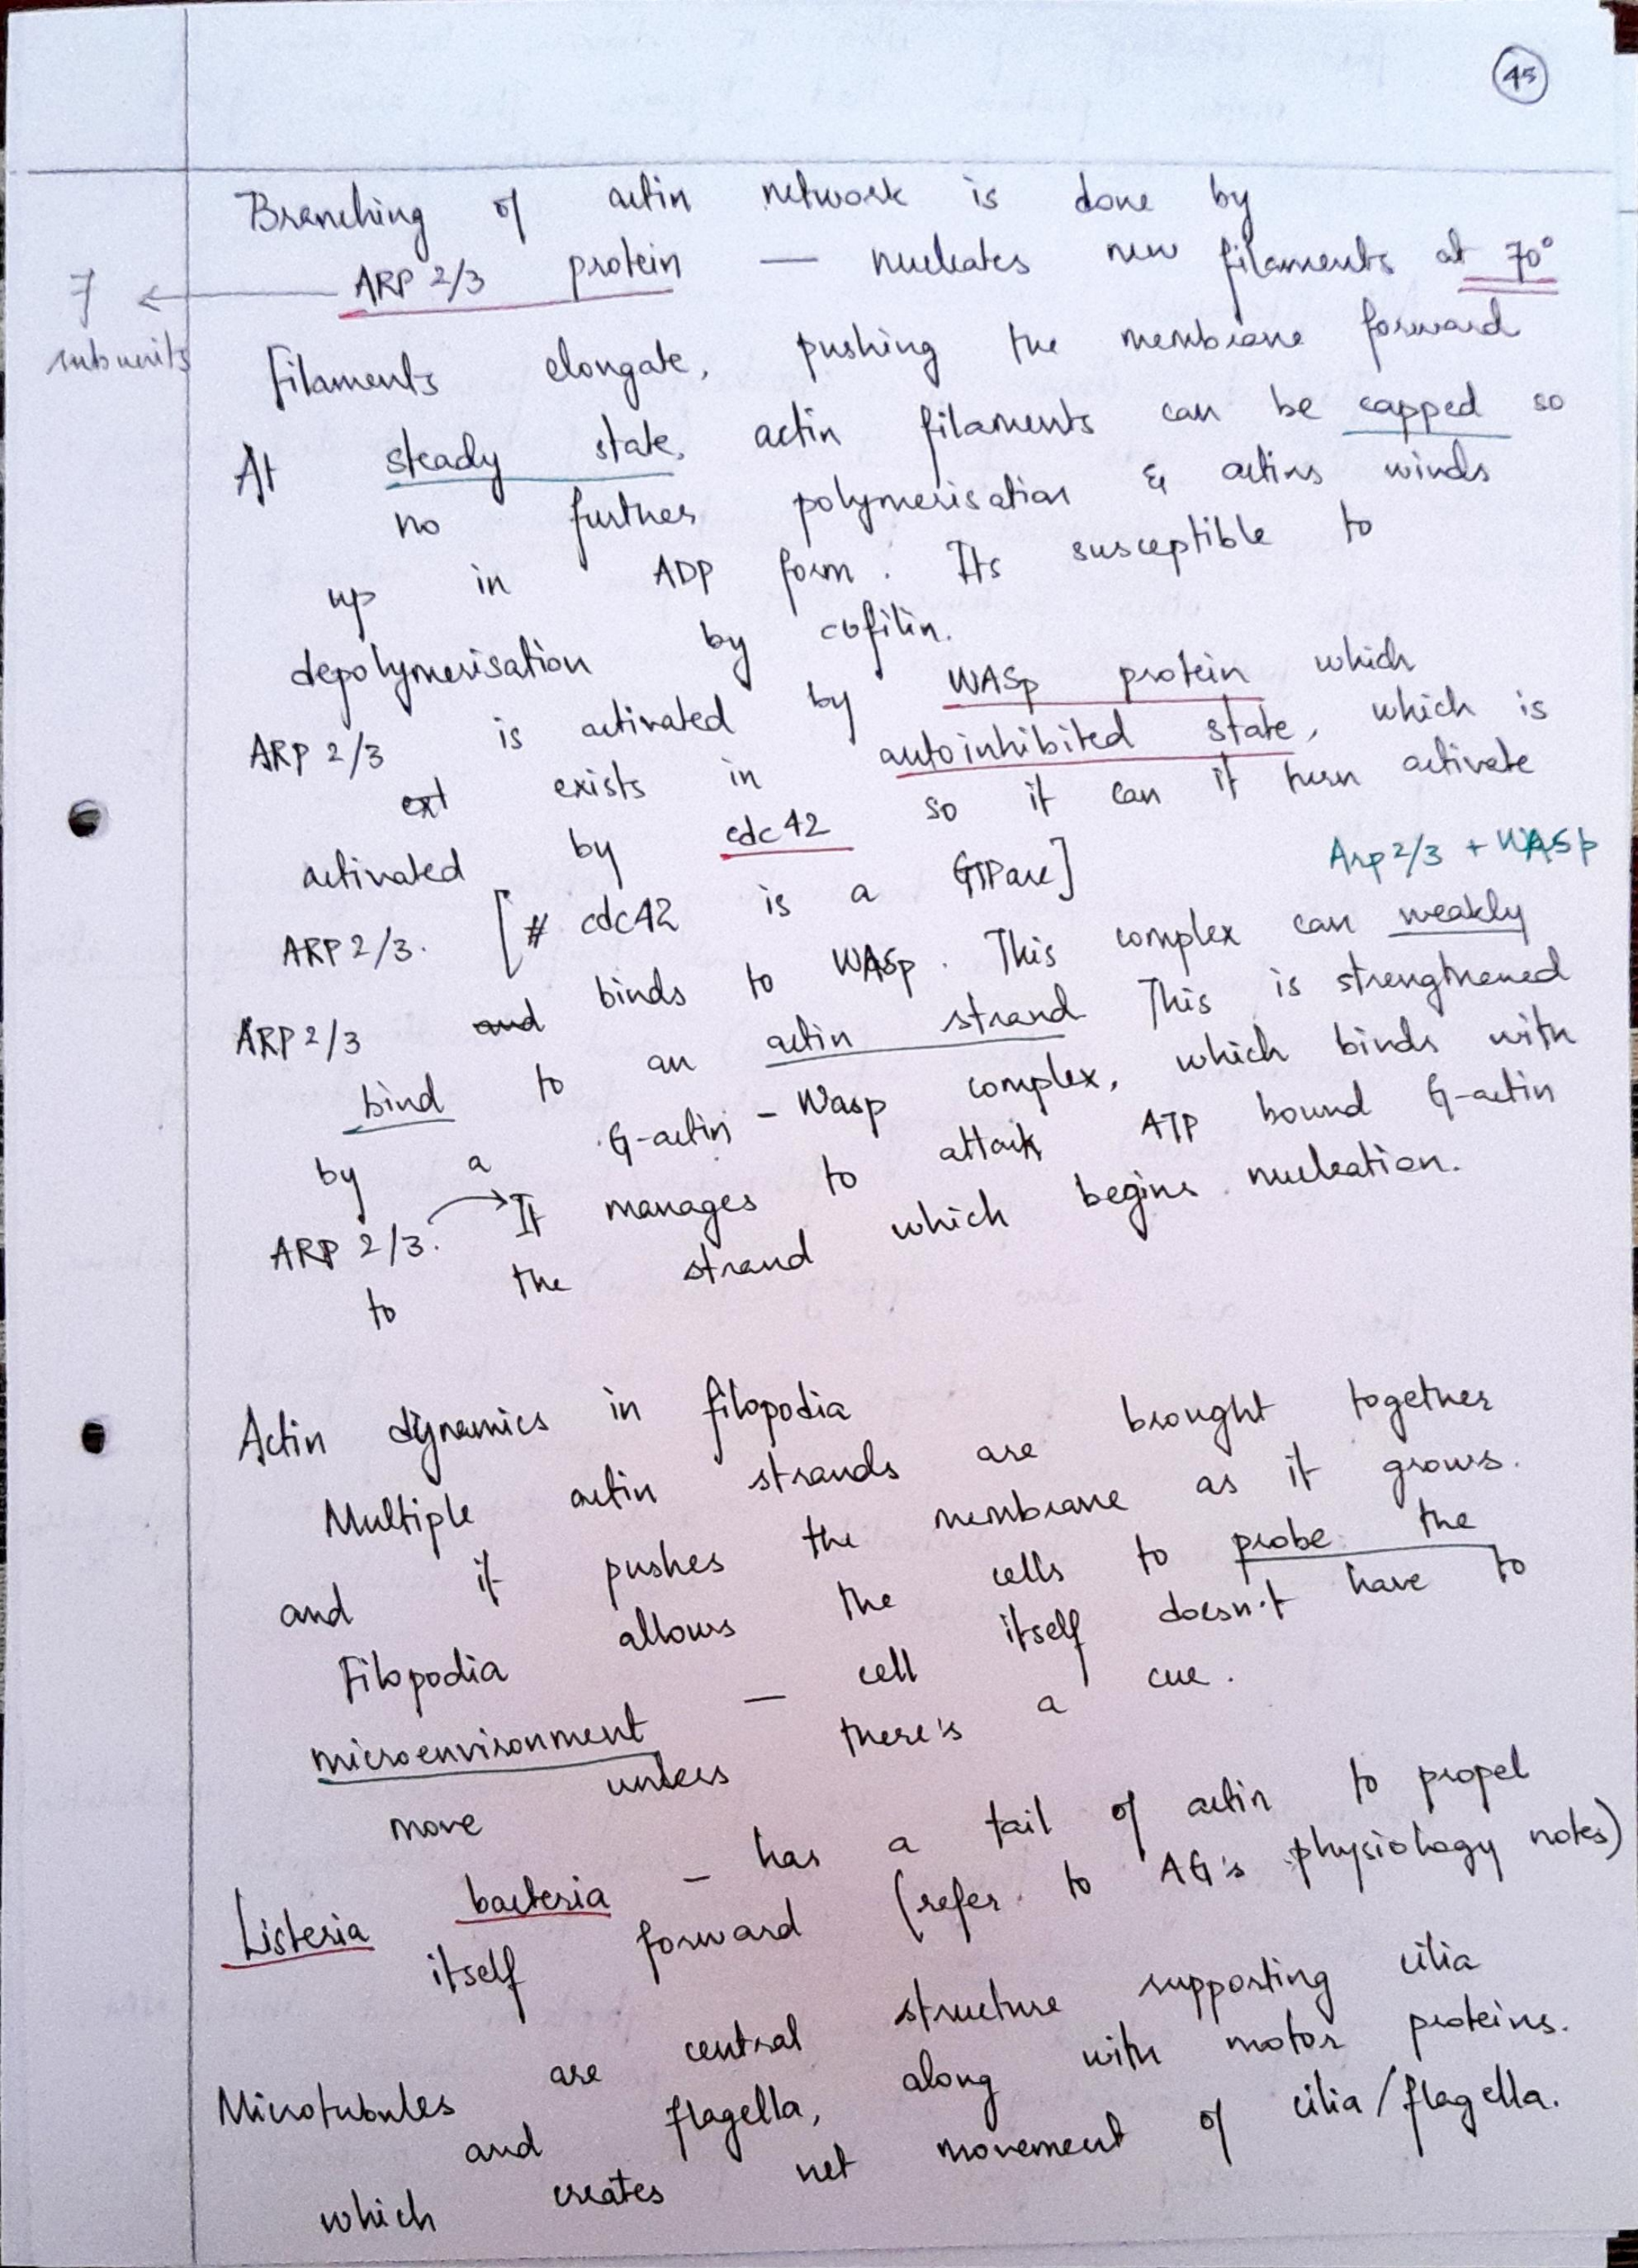 45
Branching of actin network is done by
7 ← ARP 2/3 protein — nucleates new filaments at 70°
subunits
Filaments elongate, pushing the membrane forward
At steady state, actin filaments can be capped so
no further polymerisation & actins winds
up in ADP form. Its susceptible to
depolymerisation by cofilin.
ARP 2/3 is activated by WASp protein which
ext exists in autoinhibited state, which is
activated by cdc42 so it can it turn activate
ARP 2/3. [# cdc42 is a GTPase]
Arp 2/3 + WASp
ARP 2/3 and binds to WASp. This complex can weakly
bind to an actin strand This is strengthened
by a G-actin - Wasp complex, which binds with
ARP 2/3. → It manages to attack ATP bound G-actin
to the strand which begins nucleation.
Actin dynamics in filopodia
Multiple actin strands are brought together
and it pushes the membrane as it grows.
Filopodia allows the cells to probe the
microenvironment — cell itself doesn't have to
move unless there's a cue.
Listeria bacteria - has a tail of actin to propel
itself forward (refer to AG's physiology notes)
Microtubules are central structure supporting cilia
and flagella, along with motor proteins.
which creates net movement of cilia/flagella.